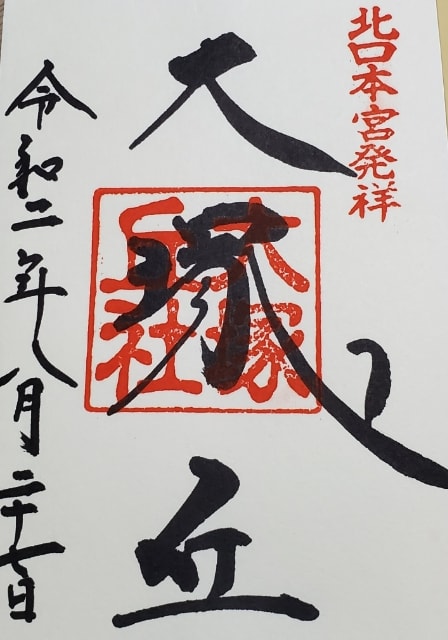 北口本宮発祥
大塚丘
大塚
丘社
令和二年八月二十七日